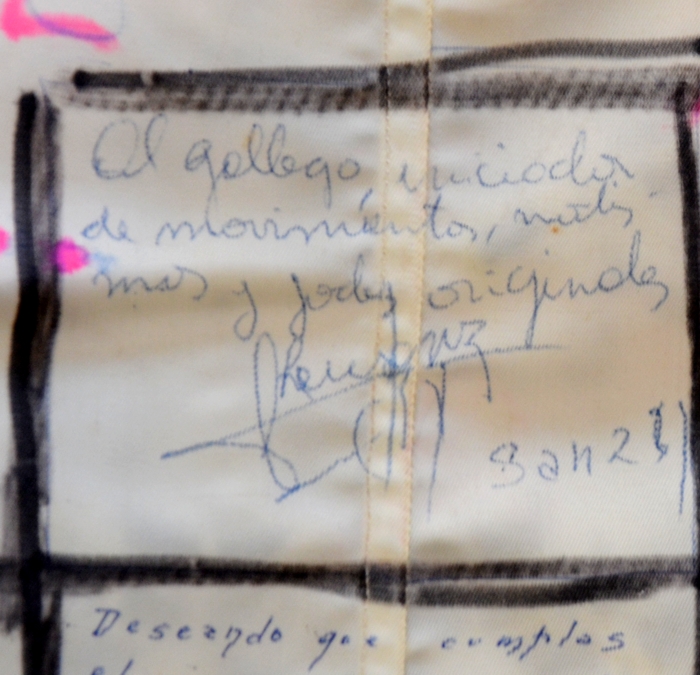 Al gallego, iniciador
de movimientos, mítis
mos y jodas originales
Sanz
Deseando que cumplas